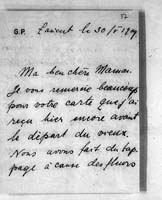 57
G.P. Laxent le 30/5 1909
Ma bien chère Maman.
Je vous remercie beaucoup
pour votre carte que j'ai
reçu hier encore avant
le départ du vieux.
Nous avons fait du tap-
page à cause des fleurs